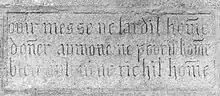 ouir messe ne tardit home
doner aumone ne povrit home
ne richit home